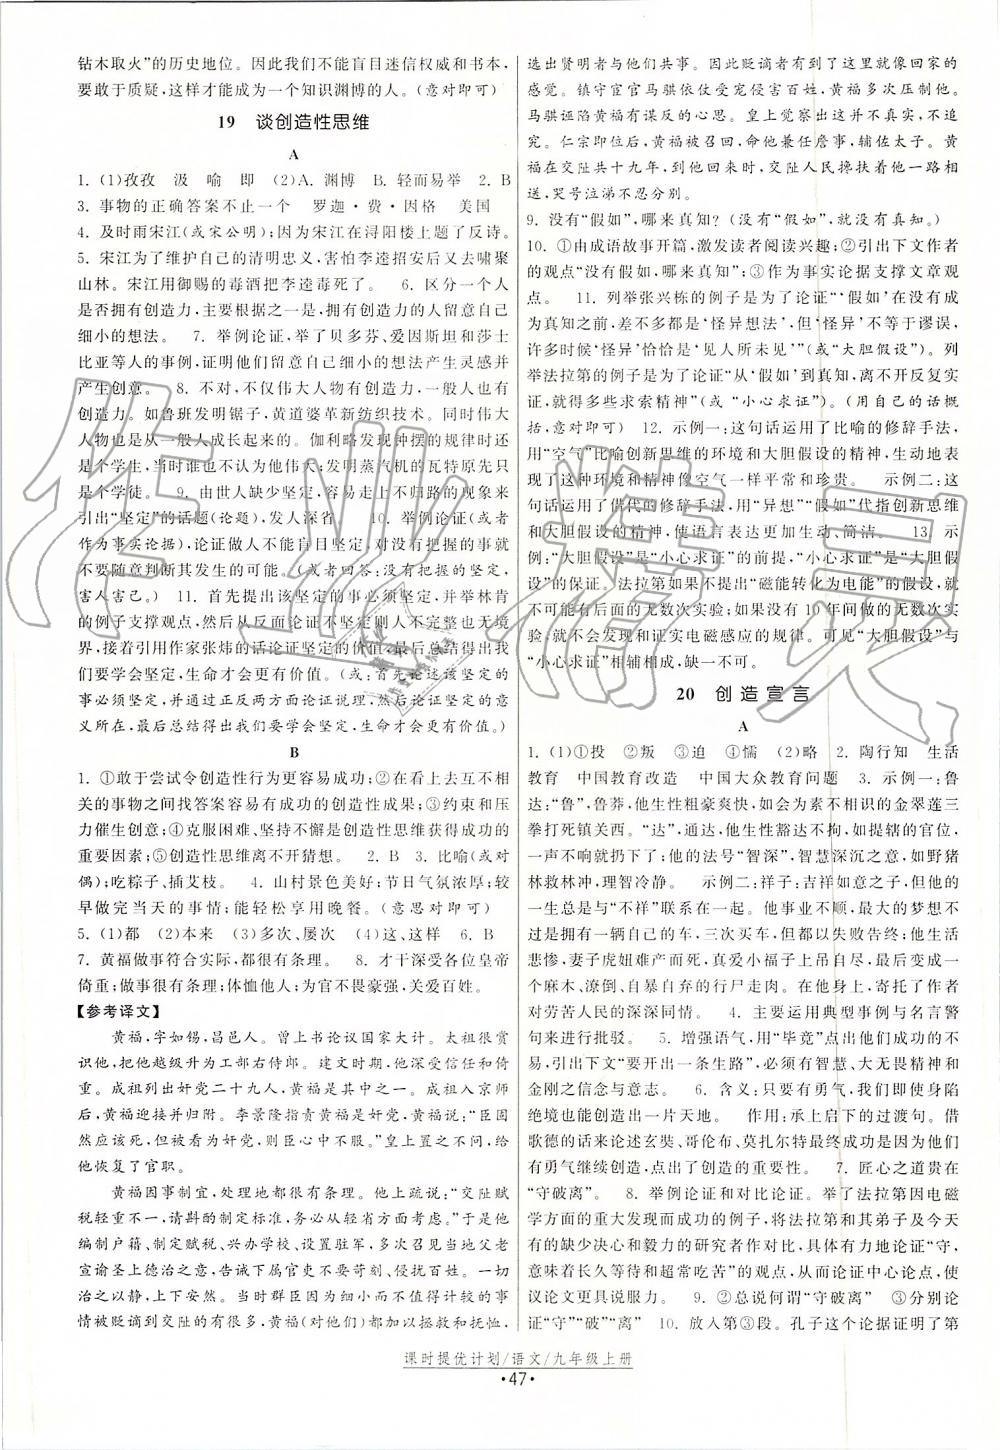 钻木取火”的历史地位。因此我们不能盲目迷信权威和书本，
要敢于质疑，这样才能成为一个知识渊博的人。(意对即可)
19 谈创造性思维
A
1. (1)孜孜 汲 喻 即 (2)A. 渊博 B. 轻而易举 2. B
3. 事物的正确答案不止一个 罗迦·费·因格 美国
4. 及时雨宋江(或宋公明)；因为宋江在浔阳楼上题了反诗。
5. 宋江为了维护自己的清明忠义，害怕李逵招安后又去啸聚
山林。宋江用御赐的毒酒把李逵毒死了。 6. 区分一个人
是否拥有创造力，主要根据之一是，拥有创造力的人留意自己
细小的想法。 7. 举例论证，举了贝多芬、爱因斯坦和莎士
比亚等人的事例，证明他们留意自己细小的想法产生灵感并
产生创意。 8. 不对，不仅伟大人物有创造力，一般人也有
创造力。如鲁班发明锯子，黄道婆革新纺织技术。同时伟大
人物也是从一般人成长起来的。伽利略发现钟摆的规律时还
是个学生，当时谁也不认为他了不起；发明蒸汽机的瓦特原先只
是个学徒。 9. 由世人缺少坚定，容易走上不归路的现象来
引出“坚定”的话题(论题)，发人深省。 10. 举例论证(或者
作为事实论据)，论证做人不能盲目坚定，对没有把握的事就
不要随意判断其发生的可能。(或者回答：没有把握的坚定，
害人害己。) 11. 首先提出该坚定的事必须坚定，并举林肯
的例子支撑观点，然后从反面论证不坚定则人不完整也无境
界，接着引用作家张炜的话论证坚定的价值，最后总结得出我
们要学会坚定，生命才会更有价值。(或：提出该坚定的事必
须坚定，并通过正反两方面论证说理，然后论证坚定的意
义所在，最后总结得出我们要学会坚定，生命才会更有价值。)
B
1. ①敢于尝试令创造性行为更容易成功；②在看上去互不相
关的事物之间找答案容易有成功的创造性成果；③约束和压
力催生创意；④克服困难、坚持不懈是创造性思维获得成功的
重要因素；⑤创造性思维离不开猜想。 2. B 3. 比喻(或对
偶)；吃粽子、插艾枝。 4. 山村景色美好；节日气氛浓厚；较
早做完当天的事情；能轻松享用晚餐。(意思对即可)
5. (1)都 (2)本来 (3)多次、屡次 (4)这、这样 6. B
7. 黄福做事符合实际，都很有条理。 8. 才干深受各位皇帝
倚重；做事很有条理；体恤他人；为官不畏权贵，关爱百姓。
【参考译文】
黄福，字如锡，昌邑人。曾上书论议国家大计。太祖很赏
识他，把他越级升为工部右侍郎。建文时期，他深受信任和倚
重。成祖列出奸党二十九人，黄福是其中之一。成祖入京师
后，黄福迎接并归附。李景隆指责黄福是奸党，黄福说：“臣固
然应该死，但被看为奸党，则臣心中不服。”皇上置之不问，给
他恢复了官职。
黄福因事制宜，处理地都很有条理。他上疏说：“交阯赋
税轻重不一，请斟酌制定标准，务必从轻省方面考虑。”于是他
编制户籍、制定赋税、兴办学校、设置驻军，多次召见当地父老
宣谕圣上德治之意，告诫下属官吏不要苛刻、侵扰百姓。一切
治之以静，上下安然。当时群臣因为细小而不值得计较的事
情被贬谪到交阯的有很多，黄福(对他们)都加以拯救和抚恤，
选出贤明者与他们共事。因此贬谪者到了这里就像回家的
感觉。镇守宦官马骐依仗受宠危害百姓，黄福多次压制他。
马骐诬陷黄福有谋反的心思。皇上觉察出这并不真实，不加
追究。仁宗即位后，黄福被召回，命他兼任詹事，辅佐太子。黄
福在交阯共十九年，到他回来时，交阯人民搀扶着他一路相
送，哭号泣涕不忍分别。
9. 没有“假如”，哪来真知？(或没有“假如”，就没有真知。)
10. ①由成语故事开篇，激发读者阅读兴趣；②引出下文作者
的观点“没有假如，哪来真知”；③作为事实论据支撑文章观
点。 11. 列举张兴栋的例子是为了论证“‘假如’在没有成
为真知之前，差不多都是‘怪异想法’，但‘怪异’不等于谬误，
许多时候‘怪异’恰恰是‘见人所未见’”(或“大胆假设”)。列
举法拉第的例子是为了论证“从‘假如’到真知，离不开反复实
证，就得多些求索精神”(或 “小心求证”)。(用自己的话概
括，意对即可) 12. 示例一：这句话运用了比喻的修辞手法，
用“空气”比喻创新思维的环境和大胆假设的精神，生动地表
现了这种环境和精神像空气一样平常和珍贵。 示例二：这
句话运用了借代的修辞手法，用“异想”“假如”代指创新思维
和大胆假设的精神，使语言表达更加生动、简洁。 13. 示
例：“大胆假设”是“小心求证”的前提，“小心求证”是“大胆假
设”的保证。法拉第如果不提出“磁能转化为电能”的假设，就
不会有后面的无数次实验；如果没有10年间做的无数次实
验，就不会发现和证实电磁感应的规律。可见“大胆假设”与
“小心求证”相辅相成，缺一不可。
20 创造宣言
A
1. (1)①投 ②叛 ③迫 ④懦 (2)略 2. 陶行知 生活
教育 中国教育改造 中国大众教育问题 3. 示例一：鲁
达：“鲁”，鲁莽，他生性粗豪爽快，如会为素不相识的金翠莲三
拳打死镇关西。“达”，通达，他生性豁达不拘，如提辖的官位，
一声不响就丢了，他的法号“智深”，智慧深沉之意，如野猪
林救林冲，理智冷静。 示例二：祥子：吉祥如意之子，但他的
一生总是与“不祥”联系在一起。他事业不祥，最大的梦想不
过拥有一辆自己的车，三次买车，但都以失败告终；他生活
悲惨，妻子虎妞难产而死，真爱小福子上吊自尽，最后成了一
个麻木、潦倒、自暴自弃的行尸走肉。在他身上，寄托了作者
对劳苦人民的深深同情。 4. 主要运用典型事例与名言警
句来进行批驳。 5. 增强语气，用“毕竟”点出他们成功的不
易，引出下文“要开出一条生路”，必须有智慧、大无畏精神和
金刚之信念与意志。 6. 含义：只要有勇气，我们即使身陷
绝境也能创造出一片天地。 作用：承上启下的过渡句。借
歌德的话来论述玄奘、哥伦布、莫扎尔特最终成功是因为他们
有勇气继续创造，点出了创造的重要性。 7. 匠心之道贵在
“守破离”。 8. 举例论证和对比论证。举了法拉第因电磁
学方面的重大发现而成功的例子，将法拉第和其弟子及今天
有的缺少决心和毅力的研究者作对比，具体有力地论证“守，
意味着长久等待和超常吃苦”的观点，从而论证中心论点，使
议论文更具说服力。 9. ②总说何谓“守破离” ③分别论
证“守”“破”“离” 10. 放入第③段。孔子这个论据证明了第
课时提优计划/语文/九年级上册
·47·
作业精灵